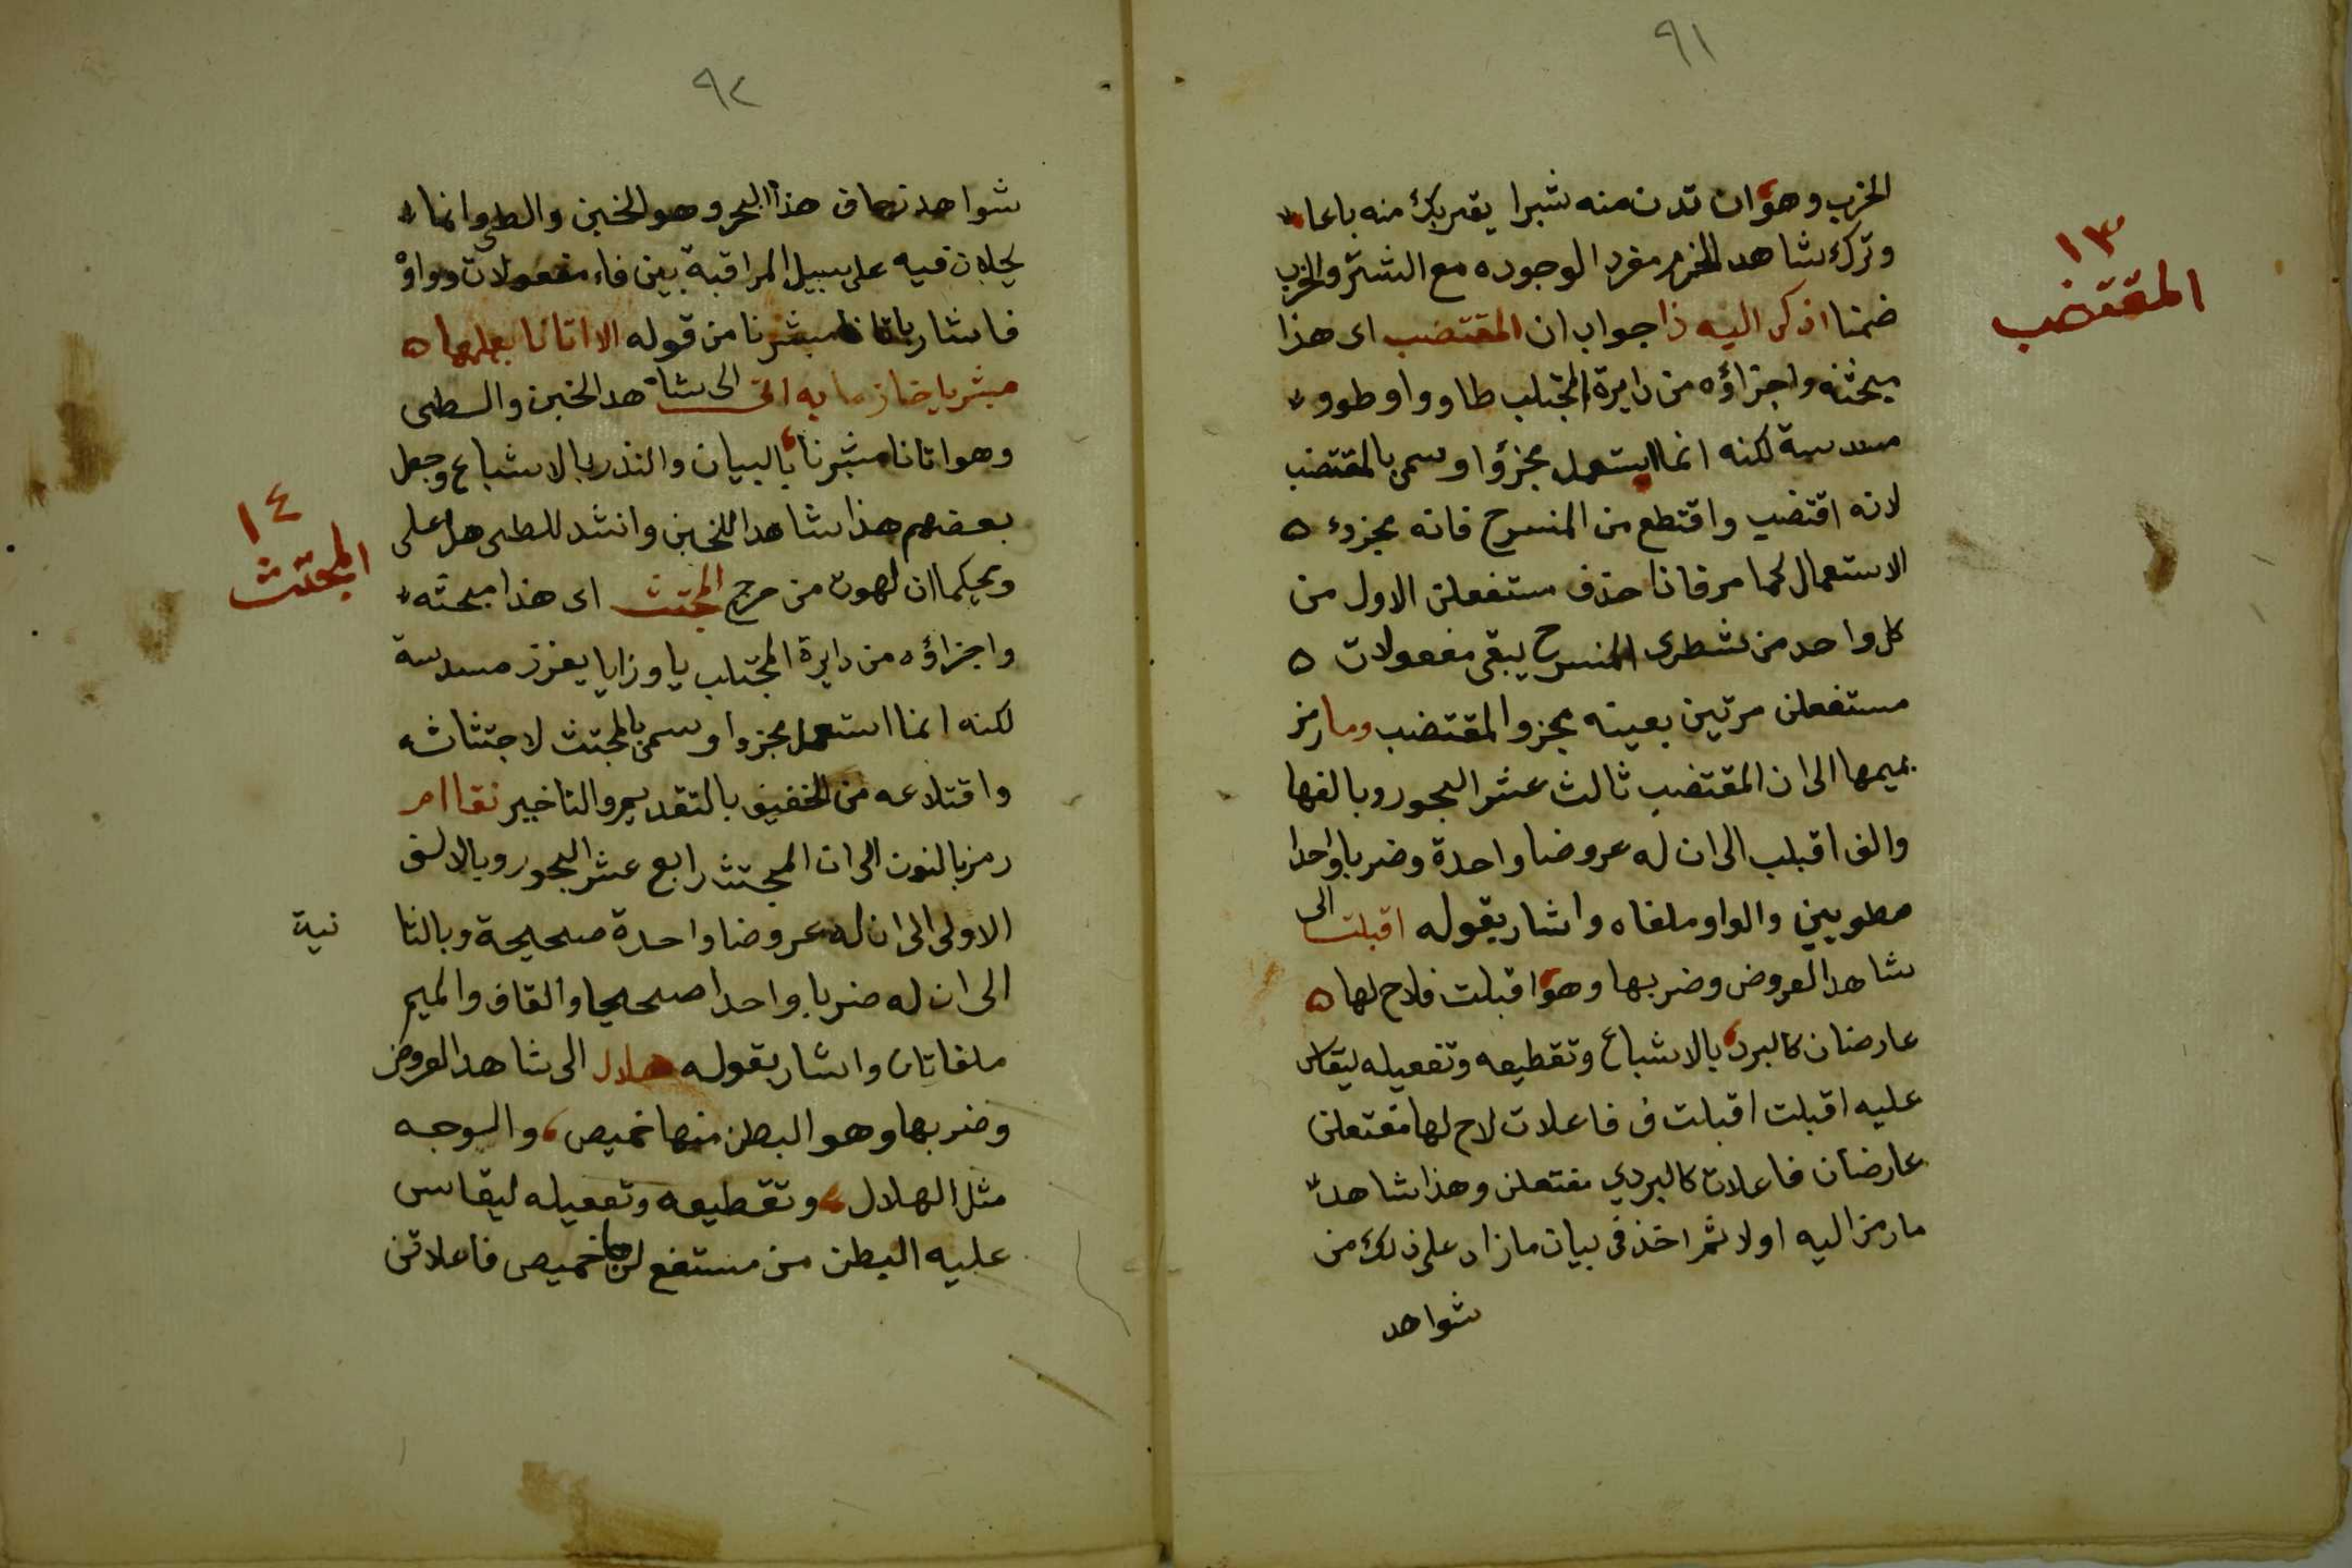 ٩١
الخرب وهو ان تدن منه شبرا يقربك منه باعا
وترك شاهد الخرم مفرد الوجوده مع الشتر والخرب
ضمنا اذكر اليه ذا جواب ان المقتضب اى هذا
١٣
المقتضب
مبحثه واجزاؤه من دايرة المجتلب طاو واو طوو
مسدسة لكنه انما استعمل مجزؤا وسمى بالمقتضب
لانه اقتضب واقتطع من المنسرح فانه مجزوء
الاستعمال كما مر فاذا حذف مستفعلن الاول من
كل واحد من شطرى المنسرح يبقى مفعولات
مستفعلن مرتين بعينه مجزو المقتضب وما رمز
بميمها الى ان المقتضب ثالث عشر البحور وبالفها
والف اقبلب الى ان له عروضا واحدة وضربا واحدا
مطويين والواو ملغاه واشار بقوله اقبلت الى
شاهد العروض وضربها وهو اقبلت فلاح لها
عارضان كالبرد بالاشباع وتقطيعه وتفعيله ليقاس
عليه اقبلت اقبلت ف فاعلات لاح لها مفتعلن
عارضان فاعلات كالبردي مفتعلن وهذا شاهد
ما رمز اليه اولا ثم اخذ فى بيان ما زاد على ذلك من
شواهد
٩٢
شواهد زحاف هذا البحر وهو الخبن والطى وانما
يحلان فيه على سبيل المراقبة بين فاء مفعولات وواوه
فاشار باتانا مبشرنا من قوله الا اتانا بعلمها
مبشر يا حناز ما به اتى الى شاهد الخبن والطى
وهو اتانا مبشرنا بالبيان والنذر بالاشباع وجعل
بعضهم هذا شاهدا للخبن وانشد للطى هل على
ويحكما ان لهوت من حرج المجتث اى هذا مبحثه
١٤
المجتث
واجزاؤه من دايرة المجتلب يا وزايا يعزز مسدسة
لكنه انما استعمل مجزوا وسمى بالمجتث لاجتثاثه
واقتلاعه من الخفيف بالتقديم والتاخير نقا ام
رمز بالنون الى ان المجتث رابع عشر البحور وبالالف
الاولى الى ان له عروضا واحدة صحيحة وبالثا نية
الى ان له ضربا واحدا صحيحا والقاف والميم
ملغاتان واشار بقوله هلال الى شاهد العروض
وضربها وهو البطن منها خميص، والوجه
مثل الهلال، وتقطيعه وتفعيله ليقاس
عليه البطن من مستفع لن ها خميص فاعلاتن